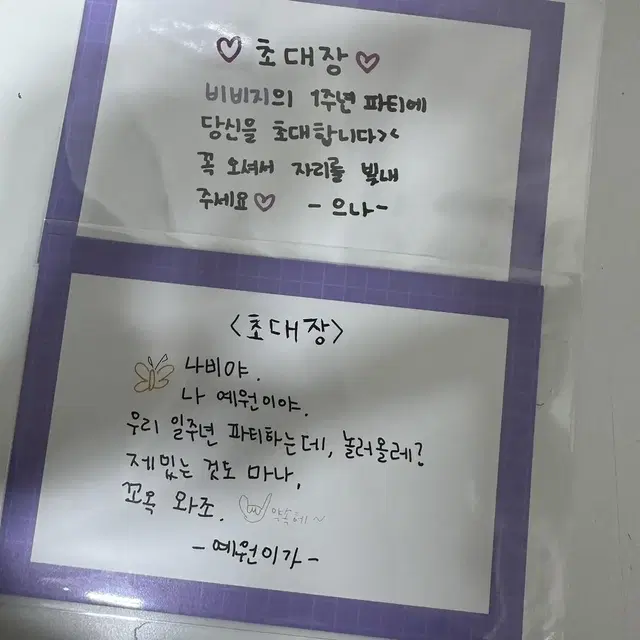 ♡ 초대장 ♡
비비지의 1주년 파티에
당신을 초대합니다><
꼭 오셔서 자리를 빛내
주세요♡ - 으나 -
<초대장>
나비야.
나 예원이야.
우리 일주년 파티하는데, 놀러올레?
제밌는 것도 마나,
꼬옥 와조. 약속해~
- 예원이가 -